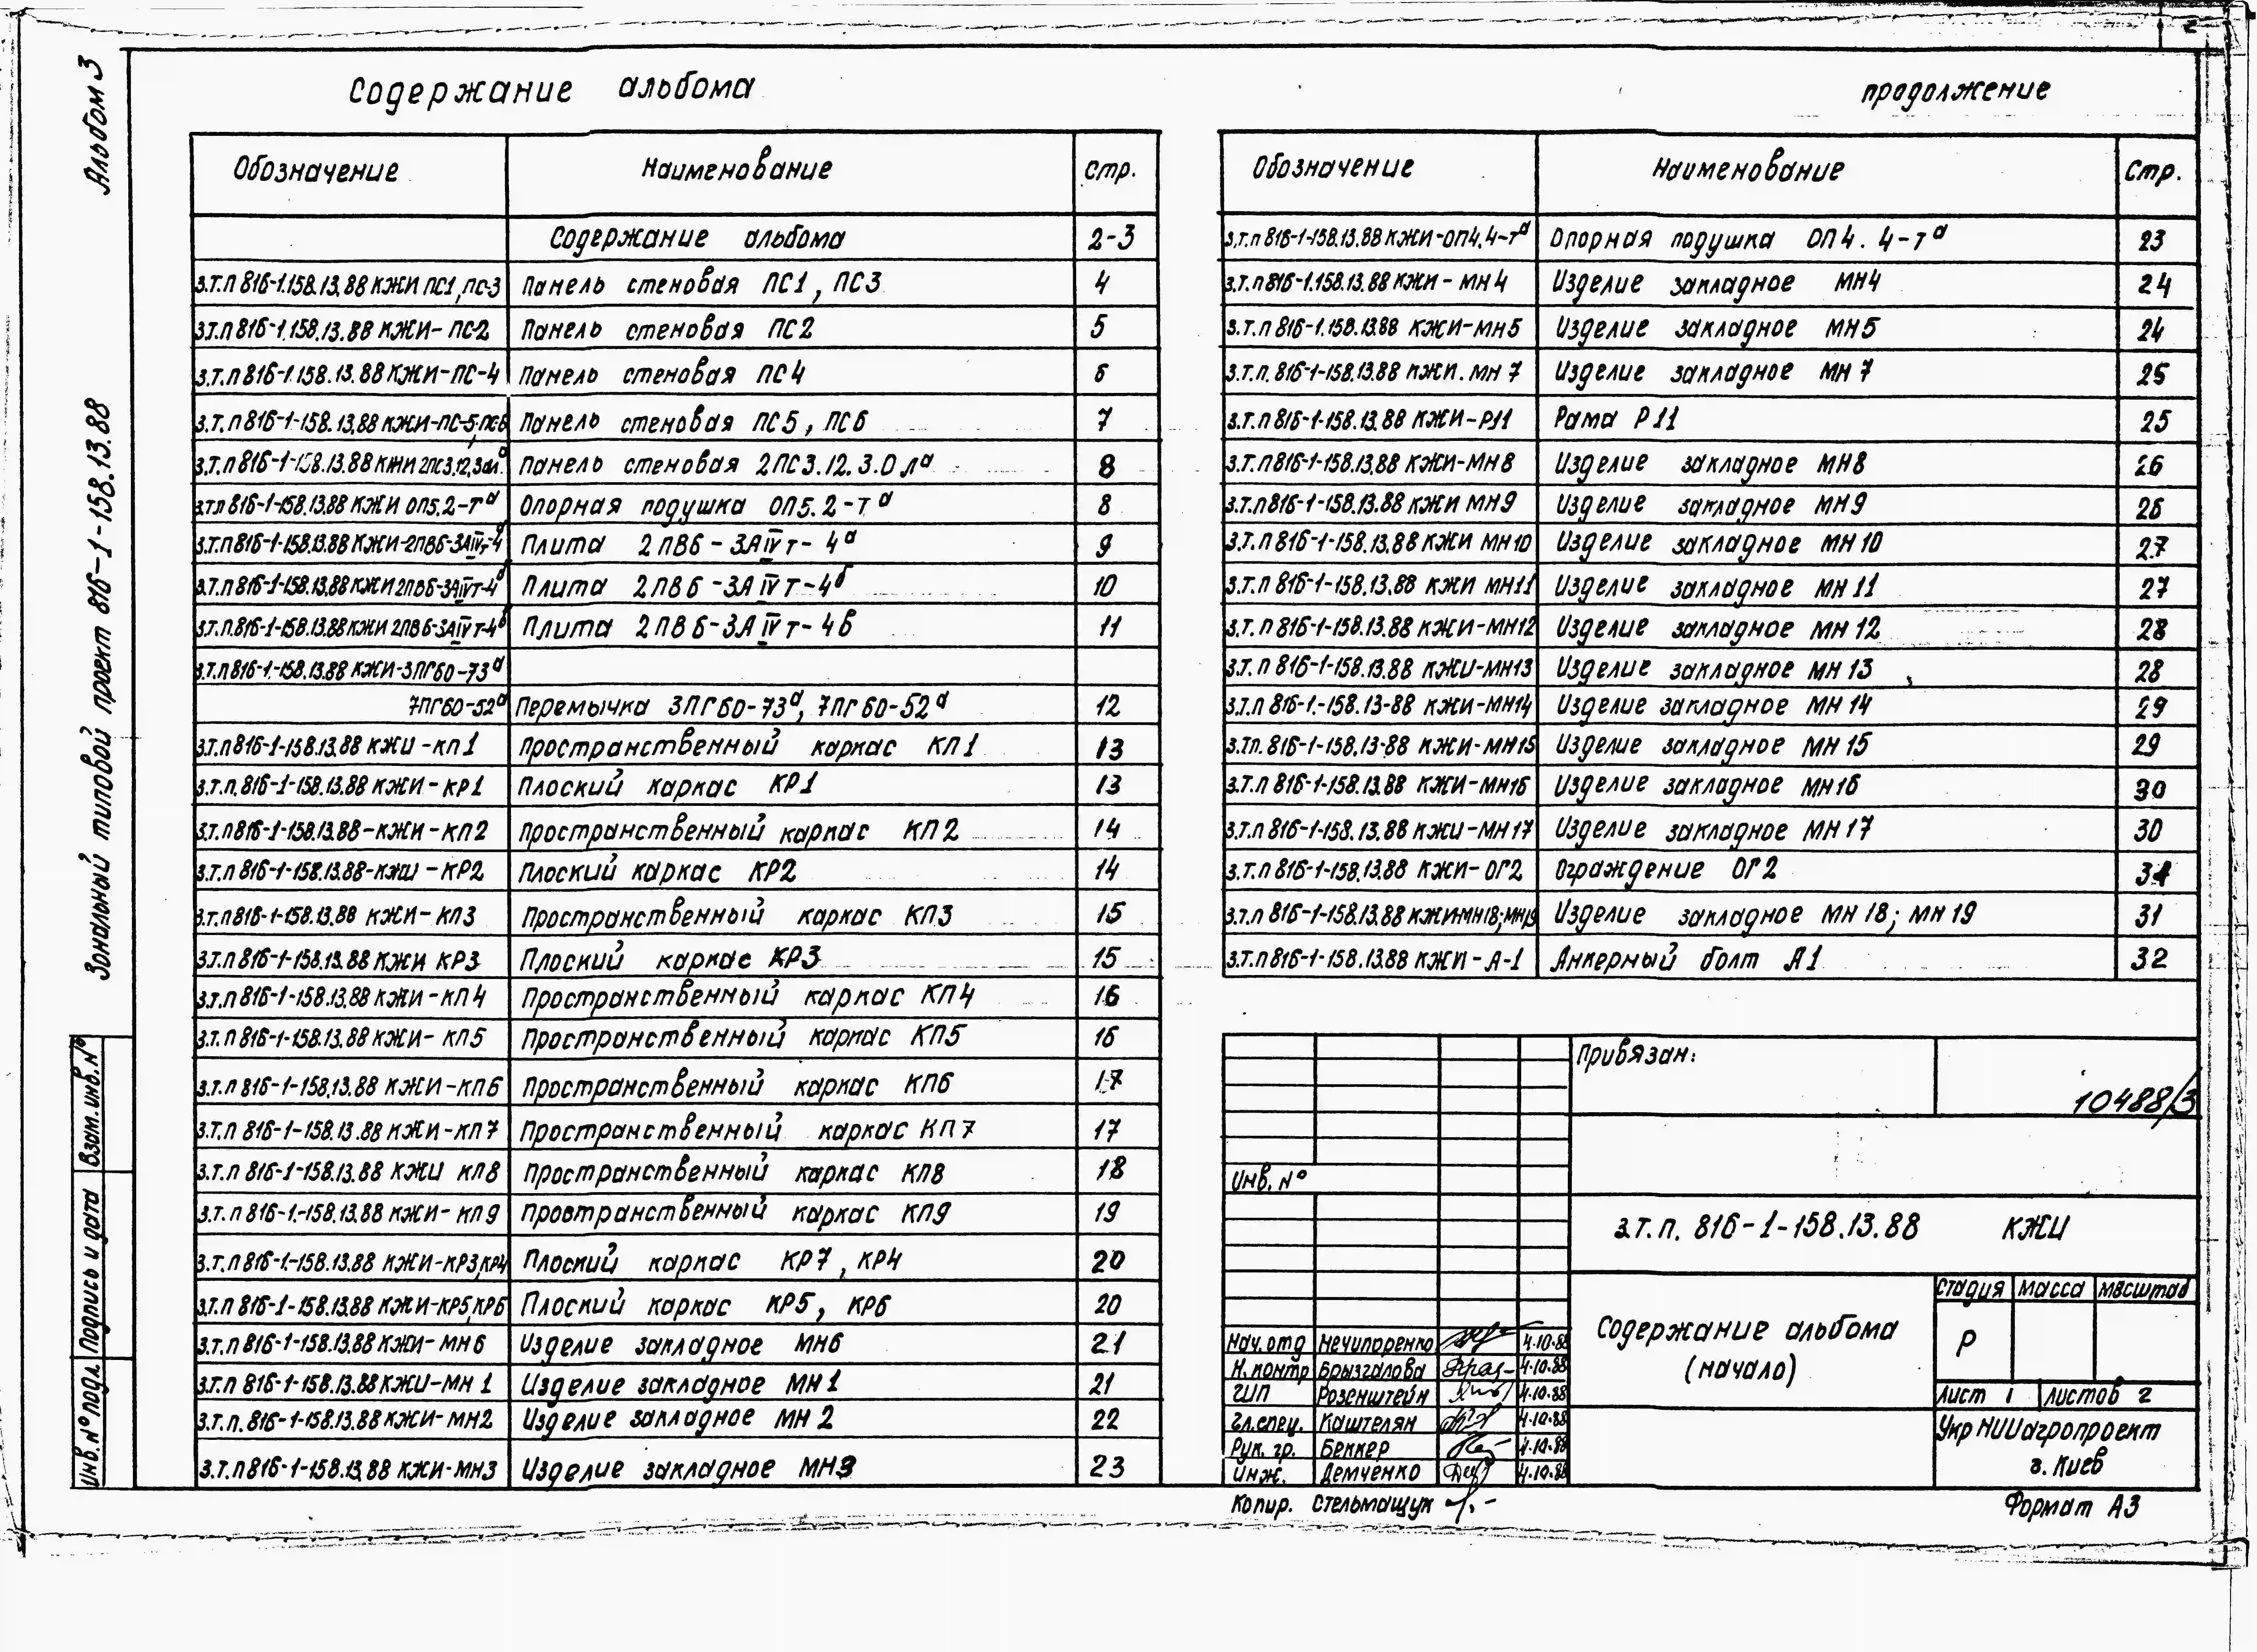 2
Альбом 3
Зональный типовой проект 816-1-158.13.88
Взам.инв.N°
Подпись и дата
Инв.N°подл.
Содержание альбома
Обозначение Наименование Стр.
Содержание альбома 2-3
з.т.п 816-1.158.13.88 КЖИ ПС1, ПС-3 Панель стеновая ПС1, ПС3 4
з.т.п 816-1.158.13.88 КЖИ-ПС-2 Панель стеновая ПС2 5
з.т.п 816-1.158.13.88 КЖИ-ПС-4 Панель стеновая ПС4 6
з.т.п 816-1-158.13.88 КЖИ-ПС-5, ПС-6 Панель стеновая ПС5, ПС6 7
з.т.п 816-1-158.13.88 КЖИ 2ПС3.12,3.0лª Панель стеновая 2ПС3.12.3.0лª 8
з.т.п 816-1-158.13.88 КЖИ ОП5.2-тª Опорная подушка ОП5.2-тª 8
з.т.п 816-1-158.13.88 КЖИ-2ПВ6-3АIVт-4ª Плита 2ПВ6-3АIVт-4ª 9
з.т.п 816-1-158.13.88 КЖИ 2ПВ6-3АIVт-4б Плита 2ПВ6-3АIVт-4б 10
з.т.п. 816-1-158.13.88 КЖИ 2ПВ6-3АIVт-4в Плита 2ПВ6-3АIVт-4в 11
з.т.п 816-1-158.13.88 КЖИ-3ПГ60-73ª
7ПГ60-52ª Перемычка 3ПГ60-73ª, 7ПГ60-52ª 12
з.т.п 816-1-158.13.88 КЖИ-КП1 Пространственный каркас КП1 13
з.т.п. 816-1-158.13.88 КЖИ-КР1 Плоский каркас КР1 13
з.т.п 816-1-158.13.88-КЖИ-КП2 Пространственный каркас КП2 14
з.т.п 816-1-158.13.88-КЖИ-КР2 Плоский каркас КР2 14
з.т.п 816-1-158.13.88 КЖИ-КП3 Пространственный каркас КП3 15
з.т.п 816-1-158.13.88 КЖИ КР3 Плоский каркас КР3 15
з.т.п 816-1-158.13.88 КЖИ-КП4 Пространственный каркас КП4 16
з.т.п 816-1-158.13.88 КЖИ-КП5 Пространственный каркас КП5 16
з.т.п 816-1-158.13.88 КЖИ-КП6 Пространственный каркас КП6 17
з.т.п 816-1-158.13.88 КЖИ-КП7 Пространственный каркас КП7 17
з.т.п 816-1-158.13.88 КЖИ КП8 Пространственный каркас КП8 18
з.т.п 816-1.-158.13.88 КЖИ-КП9 Провтранственный каркас КП9 19
з.т.п 816-1.-158.13.88 КЖИ-КР3,КР4 Плоский каркас КР7, КР4 20
з.т.п 816-1-158.13.88 КЖИ-КР5,КР6 Плоский каркас КР5, КР6 20
з.т.п 816-1-158.13.88 КЖИ-МН6 Изделие закладное МН6 21
з.т.п 816-1-158.13.88 КЖИ-МН1 Изделие закладное МН1 21
з.т.п. 816-1-158.13.88 КЖИ-МН2 Изделие закладное МН2 22
з.т.п 816-1-158.13.88 КЖИ-МН3 Изделие закладное МН3 23
продолжение
Обозначение Наименование Стр.
з.т.п 816-1-158.13.88 КЖИ-ОП4.4-тª Опорная подушка ОП4.4-тª 23
з.т.п 816-1.158.13.88 КЖИ-МН4 Изделие закладное МН4 24
з.т.п 816-1.158.13.88 КЖИ-МН5 Изделие закладное МН5 24
з.т.п. 816-1-158.13.88 КЖИ.МН7 Изделие закладное МН7 25
з.т.п 816-1-158.13.88 КЖИ-Р11 Рама Р11 25
з.т.п 816-1-158.13.88 КЖИ-МН8 Изделие закладное МН8 26
з.т.п 816-1-158.13.88 КЖИ МН9 Изделие закладное МН9 26
з.т.п 816-1-158.13.88 КЖИ МН10 Изделие закладное МН10 27
з.т.п 816-1-158.13.88 КЖИ МН11 Изделие закладное МН11 27
з.т.п 816-1-158.13.88 КЖИ-МН12 Изделие закладное МН12 28
з.т.п 816-1-158.13.88 КЖИ-МН13 Изделие закладное МН13 28
з.т.п 816-1.-158.13-88 КЖИ-МН14 Изделие закладное МН14 29
з.т.п. 816-1-158.13-88 КЖИ-МН15 Изделие закладное МН15 29
з.т.п 816-1-158.13.88 КЖИ-МН16 Изделие закладное МН16 30
з.т.п 816-1-158.13.88 КЖИ-МН17 Изделие закладное МН17 30
з.т.п 816-1-158.13.88 КЖИ-ОГ2 Ограждение ОГ2 31
з.т.п 816-1-158.13.88 КЖИ-МН18;МН19 Изделие закладное МН18; МН19 31
з.т.п 816-1-158.13.88 КЖИ-А-1 Анкерный болт А1 32
Привязан:
10488/3
Инв. N°
з.т.п. 816-1-158.13.88 КЖИ
Содержание альбома
(начало)
Стадия Масса Масштаб
Р
Лист 1 Листов 2
УкрНИИагропроект
г. Киев
Нач.отд Нечипоренко 4.10.88
Н.контр Брызгалова 4.10.88
ГИП Розенштейн 4.10.88
Гл.спец. Каштелян 4.10.88
Рук. гр. Беккер 4.10.88
Инж. Демченко 4.10.88
Копир. Стельмащук
Формат А3